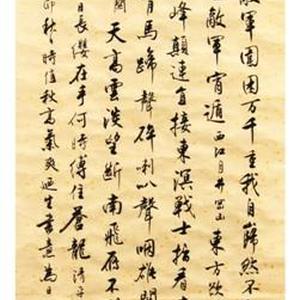 敵軍圍困万千重我自巋然不
敵軍宵遁 西江月井岡山 東方欲
峰顛連直接東溟戰士指看
月馬蹄聲碎喇叭聲咽雄関
天高雲淡望斷南飛雁不
日長纓在手何時縛住蒼龍 清平
卯秋時值秋高氣爽